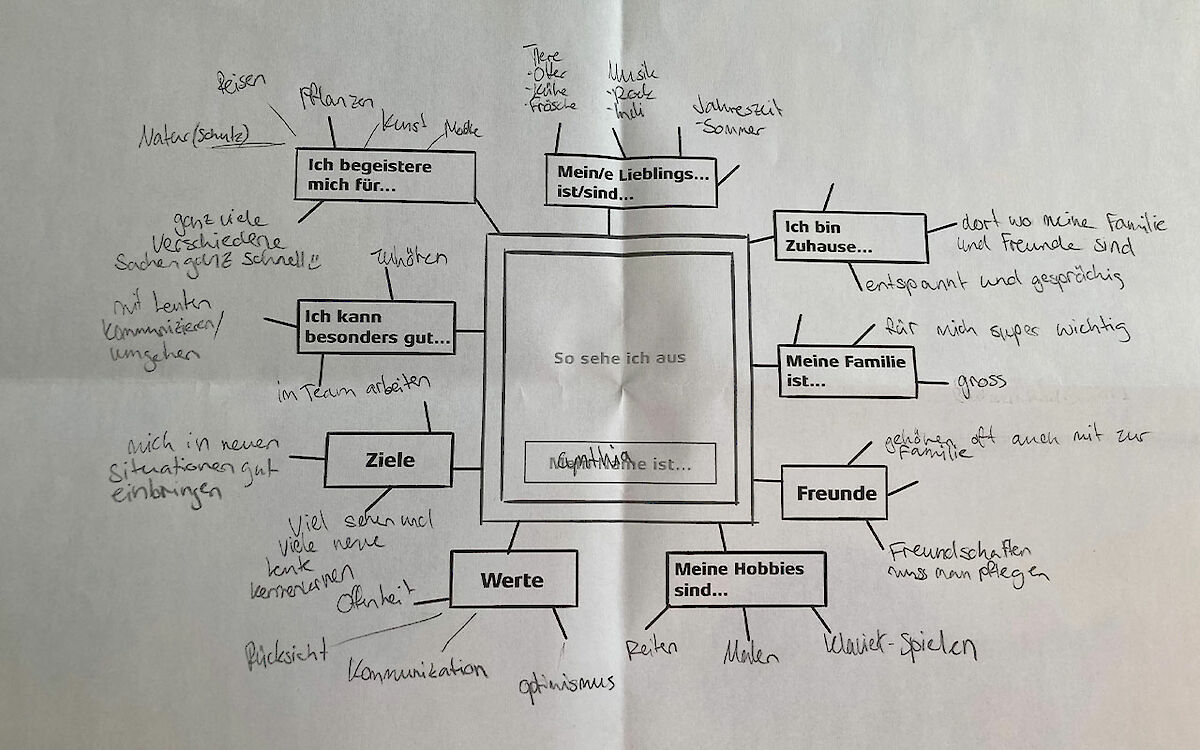 Reisen
Pflanzen
Kunst
Mode
Natur(schutz)
Ich begeistere
mich für...
ganz viele
verschiedene
Sachen ganz schnell
Tiere
-Otter
-Kühe
-Frösche
Musik
-Rock
-Indi
Jahreszeit
-Sommer
Mein/e Lieblings...
ist/sind...
Ich bin
Zuhause...
dort wo meine Familie
und Freunde sind
entspannt und gesprächig
zuhören
mit Leuten
kommunizieren/
umgehen
Ich kann
besonders gut...
im Team arbeiten
So sehe ich aus
Mein Name ist...
Cynthia
für mich super wichtig
Meine Familie
ist...
gross
mich in neuen
Situationen gut
einbringen
Ziele
Viel sehen und
viele neue
Leute
kennenlernen
gehören oft auch mit zur
Familie
Freunde
Freundschaften
muss man pflegen
Werte
Offenheit
Rücksicht
Kommunikation
optimismus
Meine Hobbies
sind...
Reiten
Malen
Klavier-Spielen